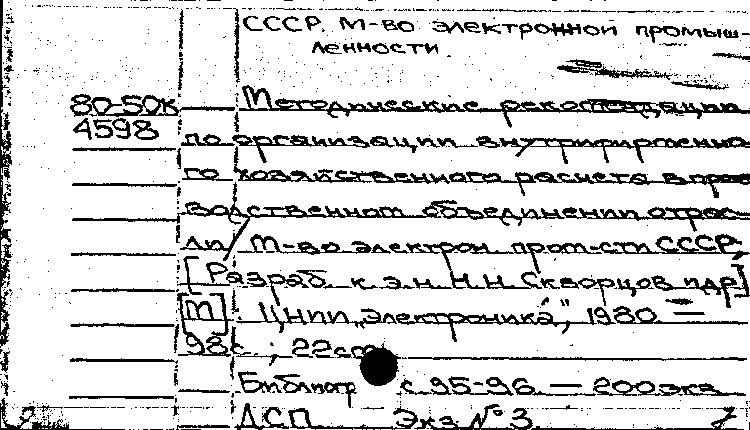 СССР. М-во электронной промыш-
ленности.
80-50к
4598
Методические рекомендации
по организации внутрифирменно
го хозяйственного расчета в прои
водственном объединении отрас-
ли / М-во электрон. пром-сти СССР;
[Разраб. к.э.н. Н.Н. Скворцов и др.]
[М]: ЦНИИ „Электроника", 1980 —
98с. ; 22см
Библиогр с. 95-96. — 200 экз
ДСП Экз № 3.